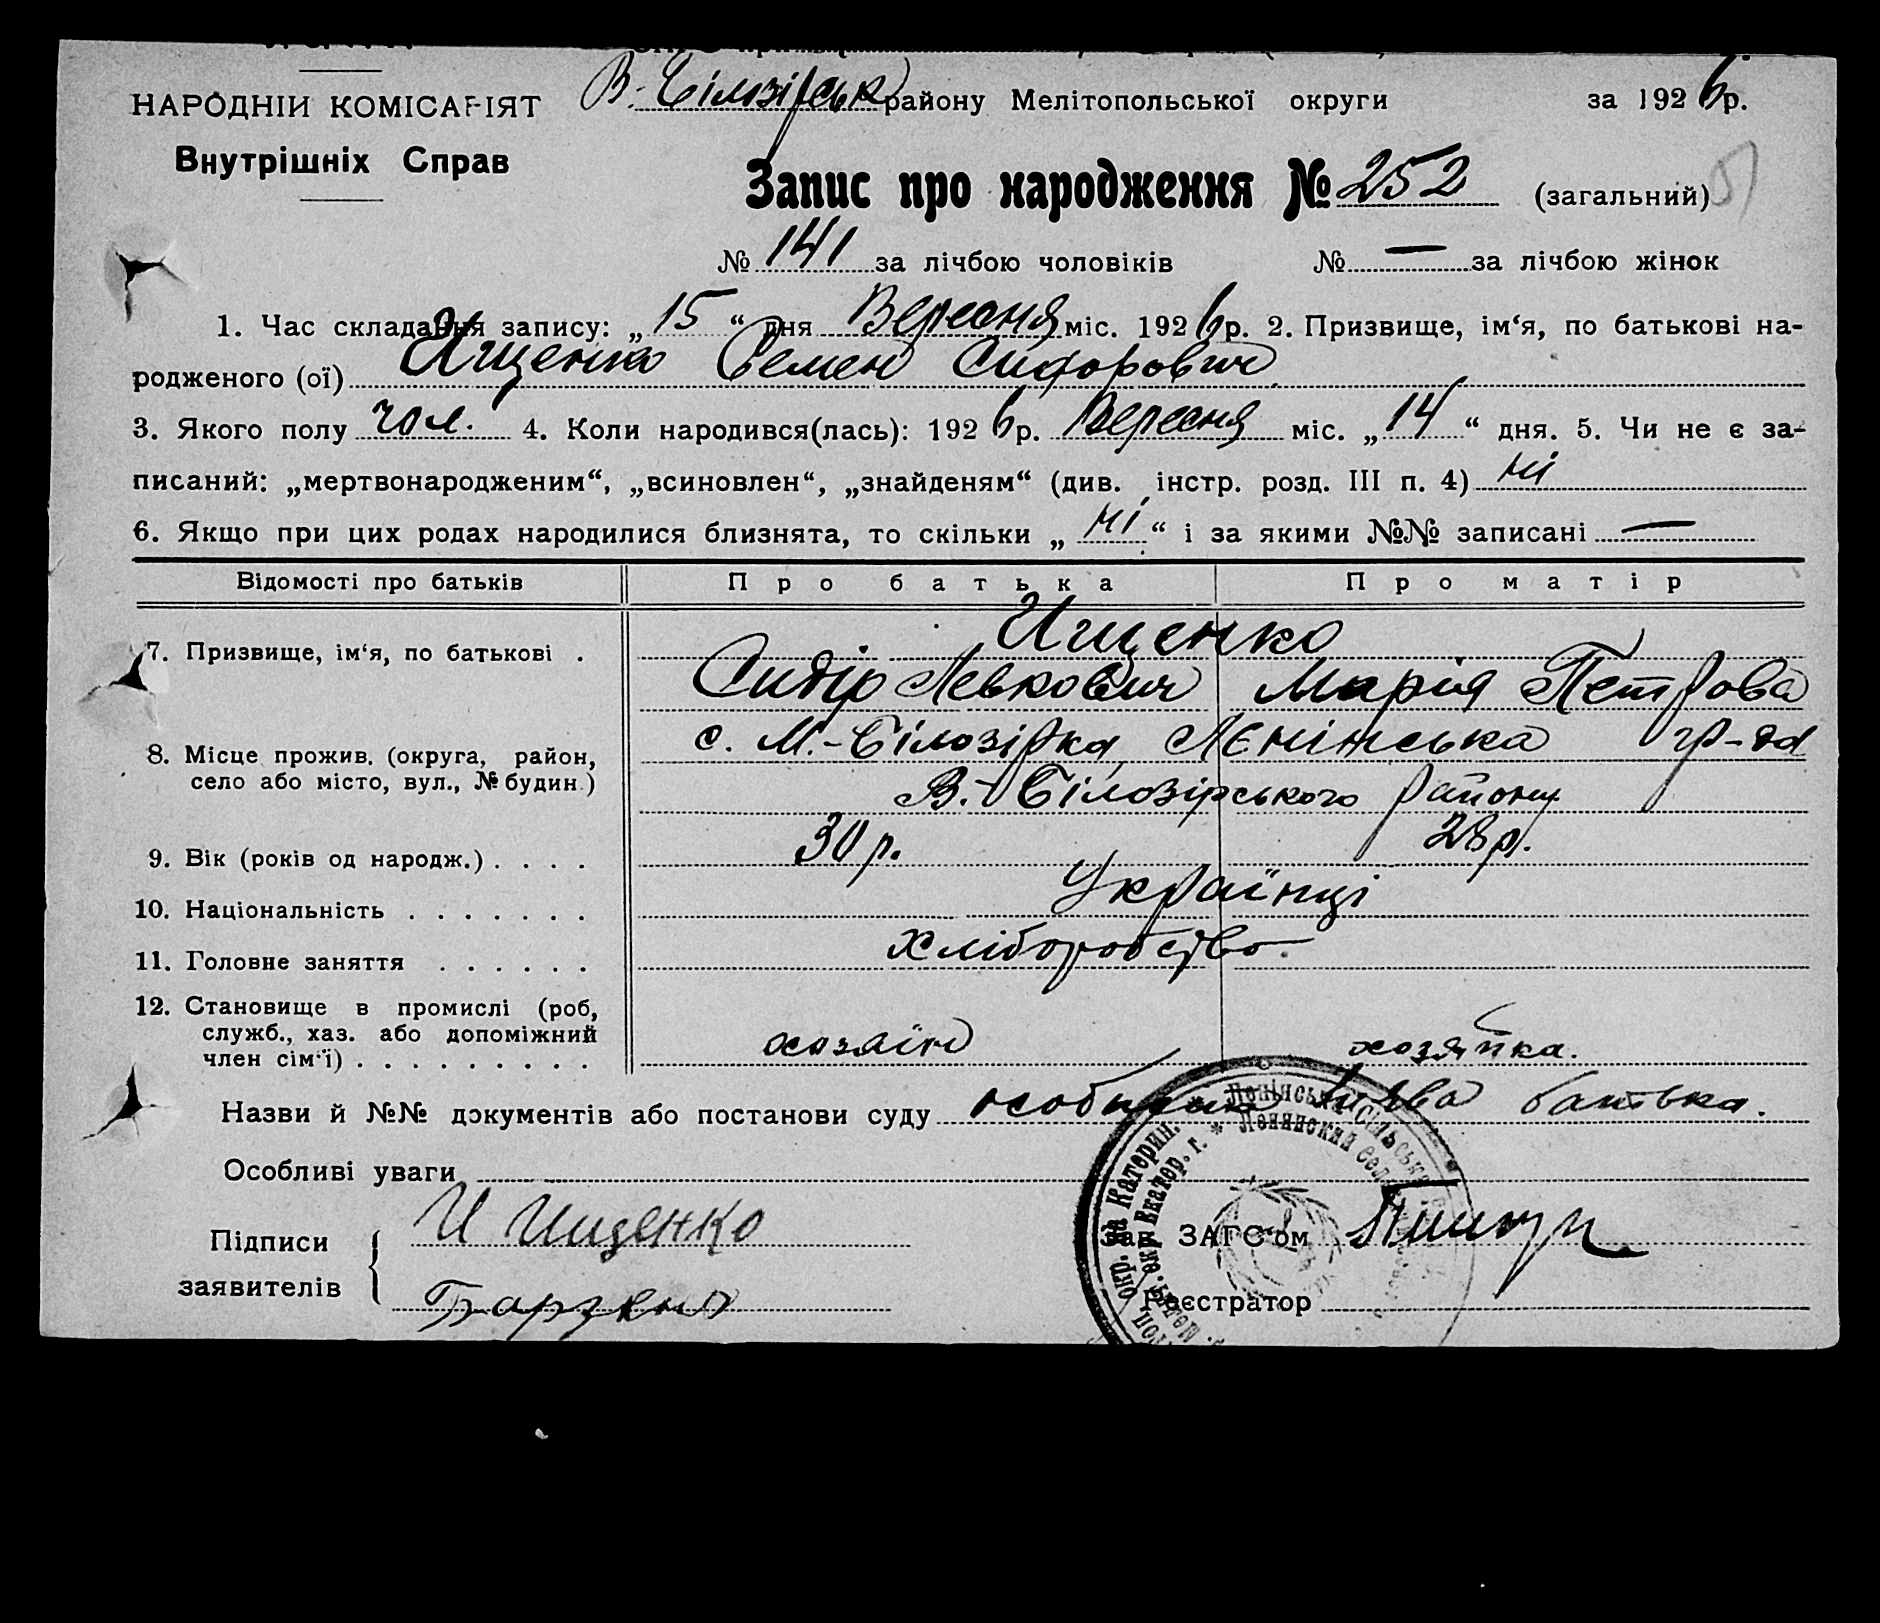 В.-Білозірськ району Мелітопольської округи за 1926 р.
НАРОДНІЙ КОМІСАРІЯТ
Внутрішніх Справ
Запис про народження № 252 (загальний)
№ 141 за лічбою чоловіків № — за лічбою жінок
1. Час складання запису: „15“ дня Вересня міс. 1926 р. 2. Призвище, ім‘я, по батькові на-
родженого (ої) Ищенко Семен Сидорович
3. Якого полу чол. 4. Коли народився(лась): 1926 р. Вересня міс. „14“ дня. 5. Чи не є за-
писаний: „мертвонародженим“, „всиновлен“, „знайденям“ (див. інстр. розд. III п. 4) ні
6. Якщо при цих родах народилися близнята, то скільки „ні“ і за якими №№ записані —
Відомості про батьків Про батька Про матір
Ищенко
7. Призвище, ім‘я, по батькові .
Сидір Левкович Марія Петрова
с. М.-Білозірка, Лєнінська
8. Місце прожив. (округа, район,
село або місто, вул., № будин.)
В.-Білозірського району
9. Вік (років од народж.) . . . . 30 р. 28 р.
10. Національність . . . . . . . Українці
11. Головне заняття . . . . . . Хліборобство.
12. Становище в промислі (роб,
служб., хаз. або допоміжний
член сім‘ї) . . . . . . . . . хозяїн хозяйка.
Назви й №№ документів або постанови суду особиста заява батька.
Особливі уваги
Підписи
заявителів
И Ищенко
Зав ЗАГС‘ом
Реєстратор
окр. на Катерин. * Ленінська Сільська
окр Екатер. г. * Ленинский Сел